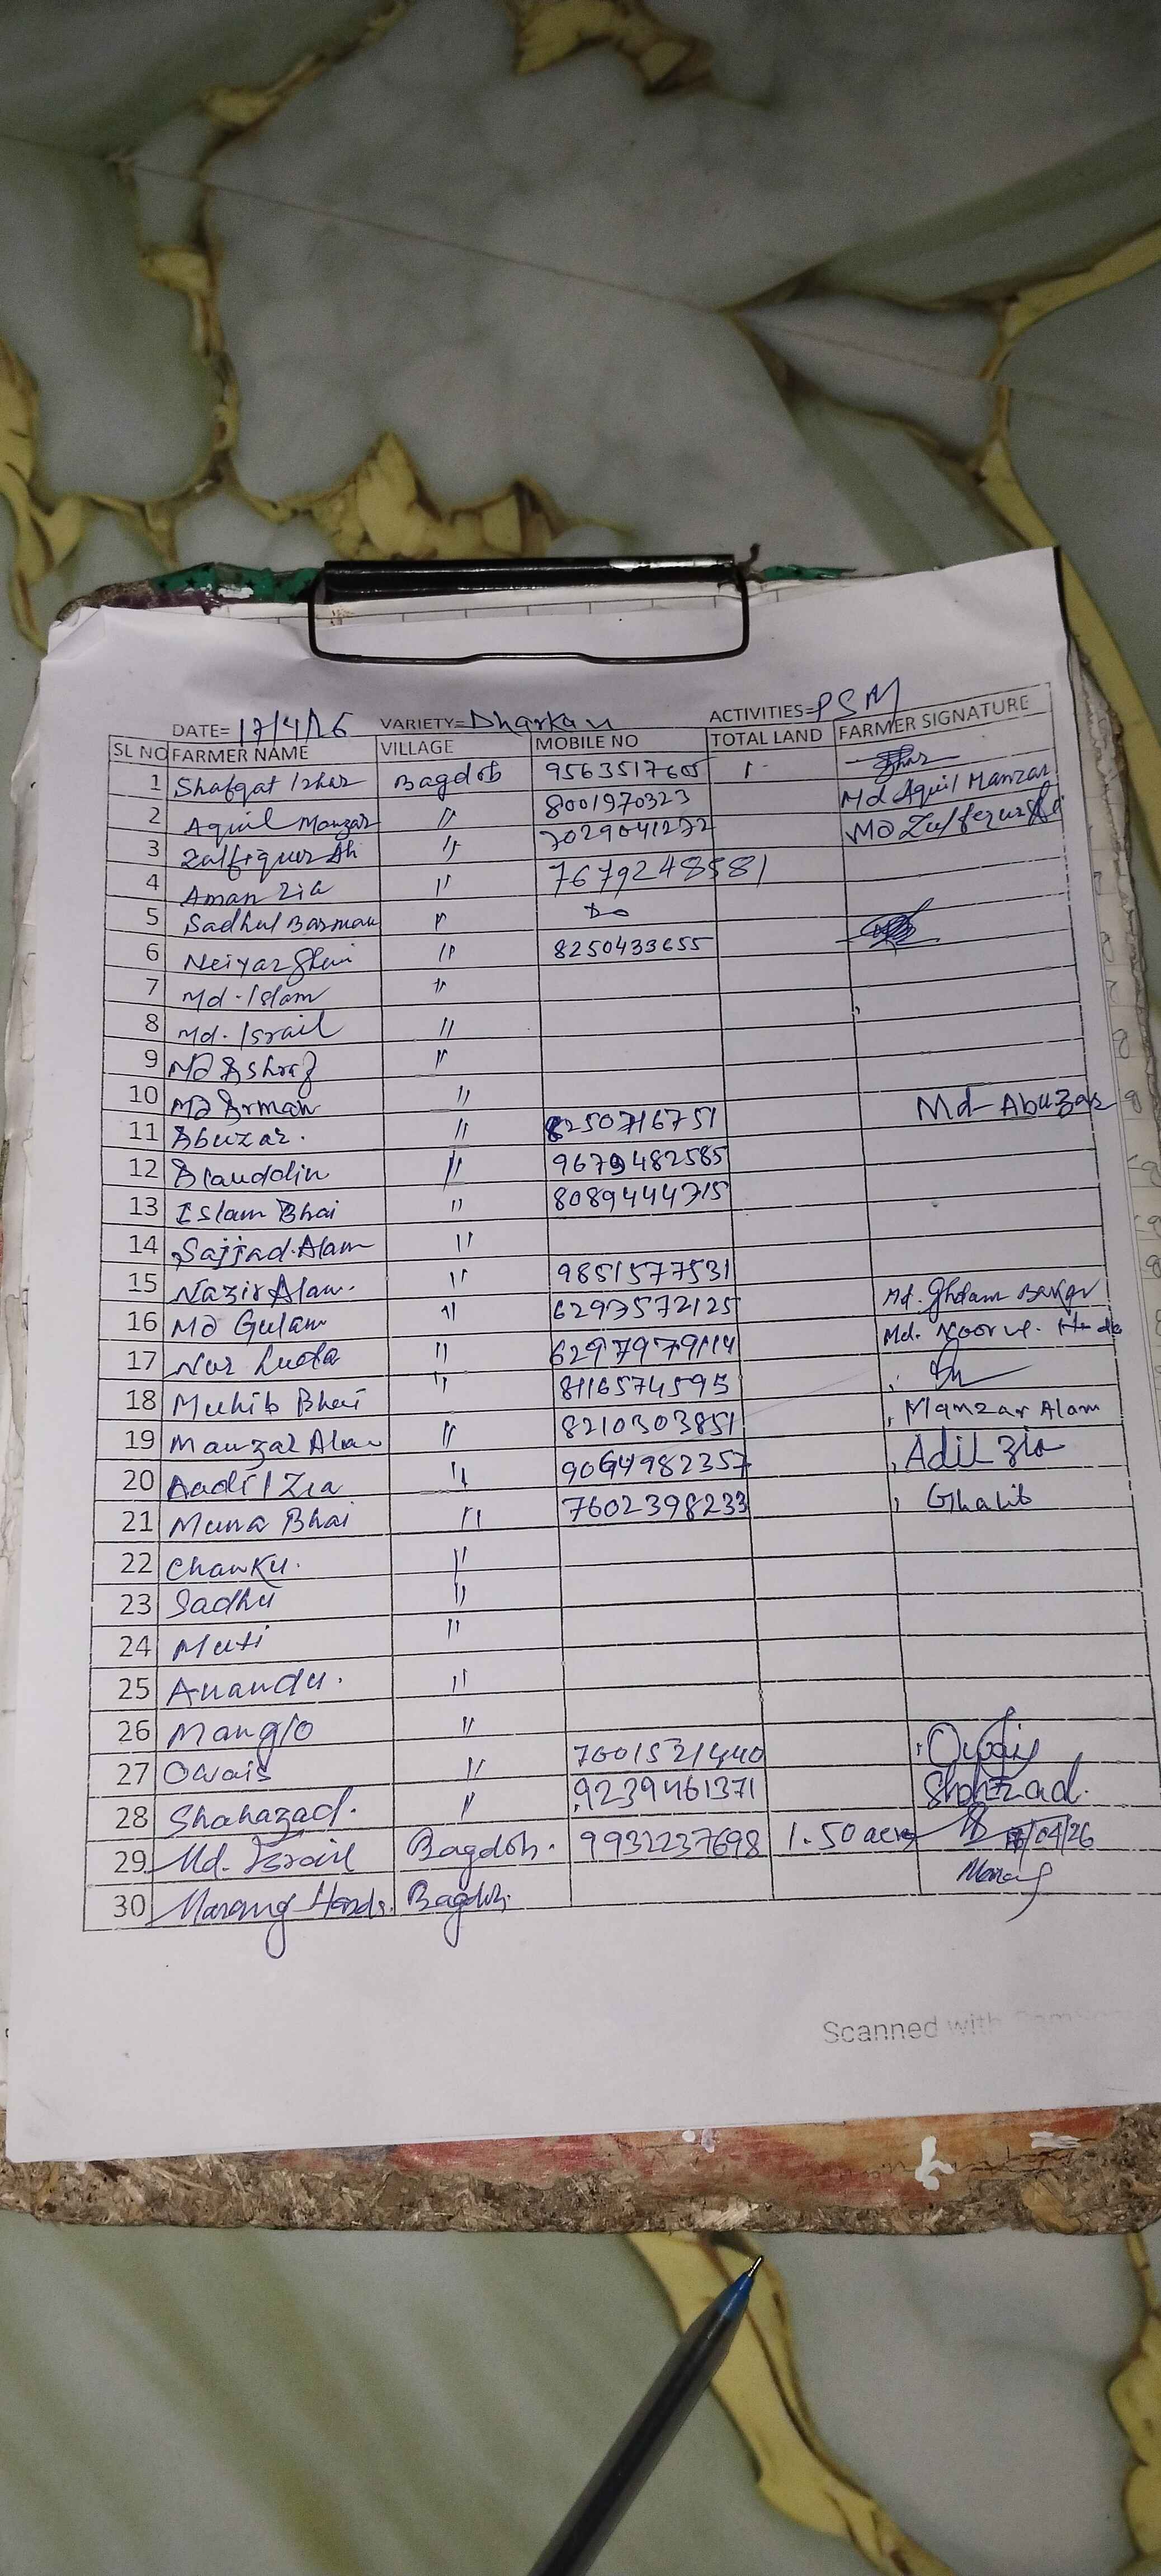 DATE= 17/4/26 VARIETY= Dharkan ACTIVITIES= PSM
SL NO FARMER NAME VILLAGE MOBILE NO TOTAL LAND FARMER SIGNATURE
1 Shafqat Izhar Bagdob 9563517605 1
2 Aquil Manzar " 8001970323 Md Aquil Manzar
3 Zulfiquer Ali " 7029041272
4 Aman Zia " 7679248581
5 Sadhul Barman " Do
6 " 8250433655
7 Md. Islam "
8 Md. Israil "
9 MD "
10 MD Arman "
11 Abuzar. " 8250716751 Md-Abuzar
12 Alauddin " 9679482585
13 Islam Bhai " 8089444715
14 Sajjad.Alam "
15 Nazir Alam. " 9851577531
16 MD Gulam " 6297572125 Md. Gholam
17 Nur Huda " 6297979114 Md. Noor ul. Huda
18 Muhib Bhai " 8116574595
19 Manzar Alam " 8210303851 Manzar Alam
20 Aadil Zia " 9064982357 Adil Zia
21 Muna Bhai " 7602398233 Ghalib
22 Chanku. "
23 Sadhu "
24 Muti "
25 Anandu. "
26 Manglo "
27 Owais " 7601521440 Owais
28 Shahazad. " 9239461371 Shahzad.
29 Md. Israil Bagdob. 9932237698 1.50 acre /04/26
30 Marang Bagdob. Marang
Scanned with